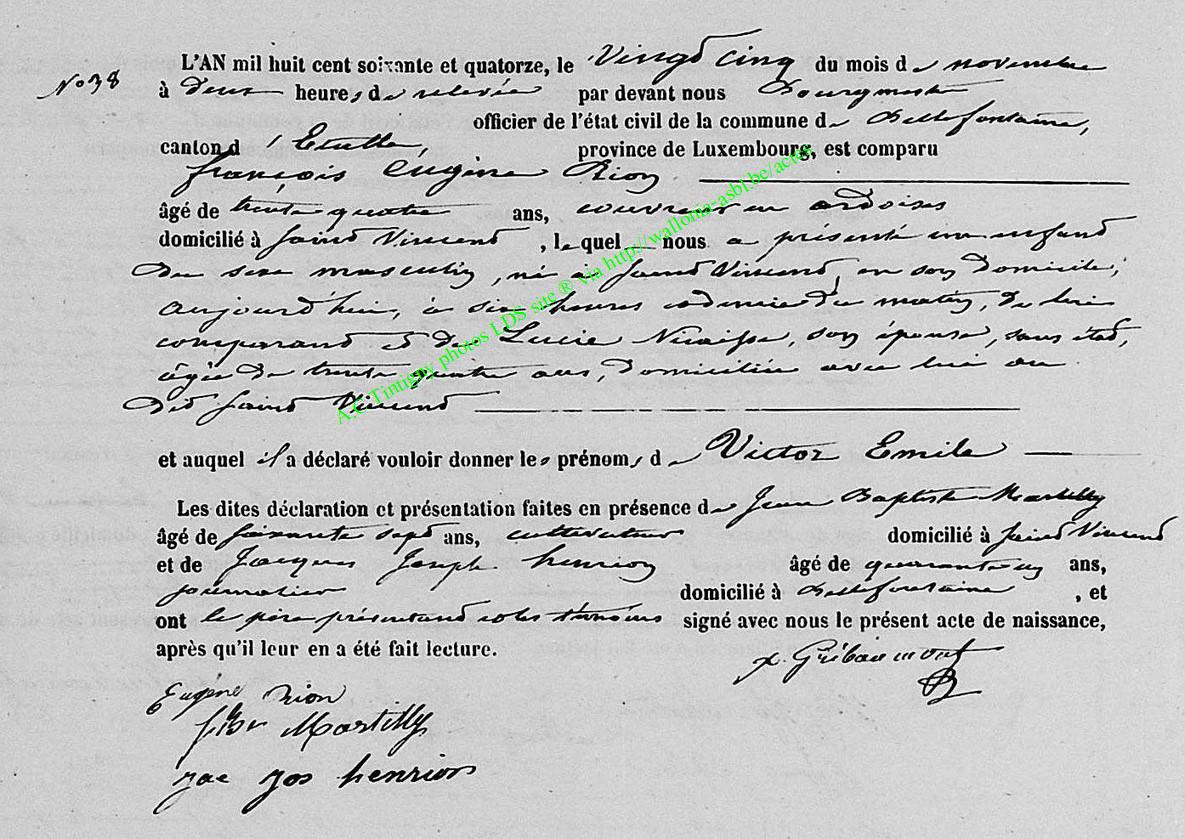 No 38
L'AN mil huit cent soixante et quatorze, le Vingt cinq du mois de novembre
à deux heures de relevée par devant nous Bourgmestre
officier de l'état civil de la commune de Bellefontaine,
canton d'Etalle, province de Luxembourg, est comparu
françois Eugène Rion
âgé de trente quatre ans, couvreur en ardoises
domicilié à Saint Vincent, lequel nous a présenté un enfant
du sexe masculin, né à Saint Vincent, en son domicile,
aujourd'hui, à six heures et demie du matin, de lui
comparant et de Lucie Nicaisse, son épouse, sans état,
âgée de trente quatre ans, domiciliée avec lui au
dit Saint Vincent
et auquel il a déclaré vouloir donner les prénoms de Victor Emile
Les dites déclaration et présentation faites en présence de Jean Baptiste Martilly
âgé de soixante sept ans, cultivateur domicilié à Saint Vincent
et de Jacques Joseph henrion âgé de quarante un ans,
journalier domicilié à Bellefontaine, et
ont le père présentant et les témoins signé avec nous le présent acte de naissance,
après qu'il leur en a été fait lecture.
Gribaumont
Eugène Rion
Martilly
jac jos henrion
A.C Tintigny photos LDS site ® via http://wallonia-asbl.be/actes